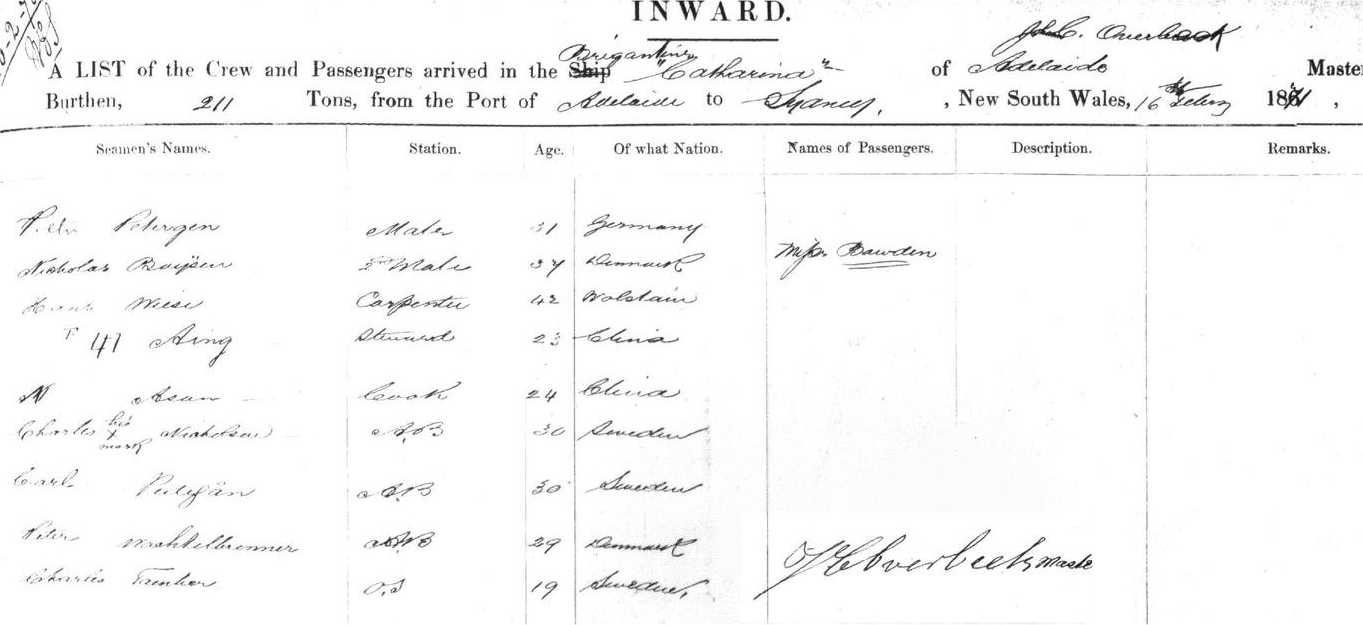 INWARD.
J.C. Overbeck
Brigantine
A LIST of the Crew and Passengers arrived in the Ship "Catharina" of Adelaide Master
Burthen, 211 Tons, from the Port of Adelaide to Sydney, , New South Wales, 16th Febry 1871 ,
Seamen's Names. Station. Age. Of what Nation. Names of Passengers. Description. Remarks.
Peter Petersen Mate 31 Germany
Miss Bawden
Nicholas Boijsen 2nd Mate 37 Denmark
Wiese Carpenter 42 Holstain
41 Aing Steward 23 China
Asun Cook 24 China
Charles his x mark Nicholson A.B 30 Sweden
Carl A.B 30 Sweden
Peter Wachtelbrenner A.B 29 Denmark
Charles O.S 19 Sweden.
Overbeck Master